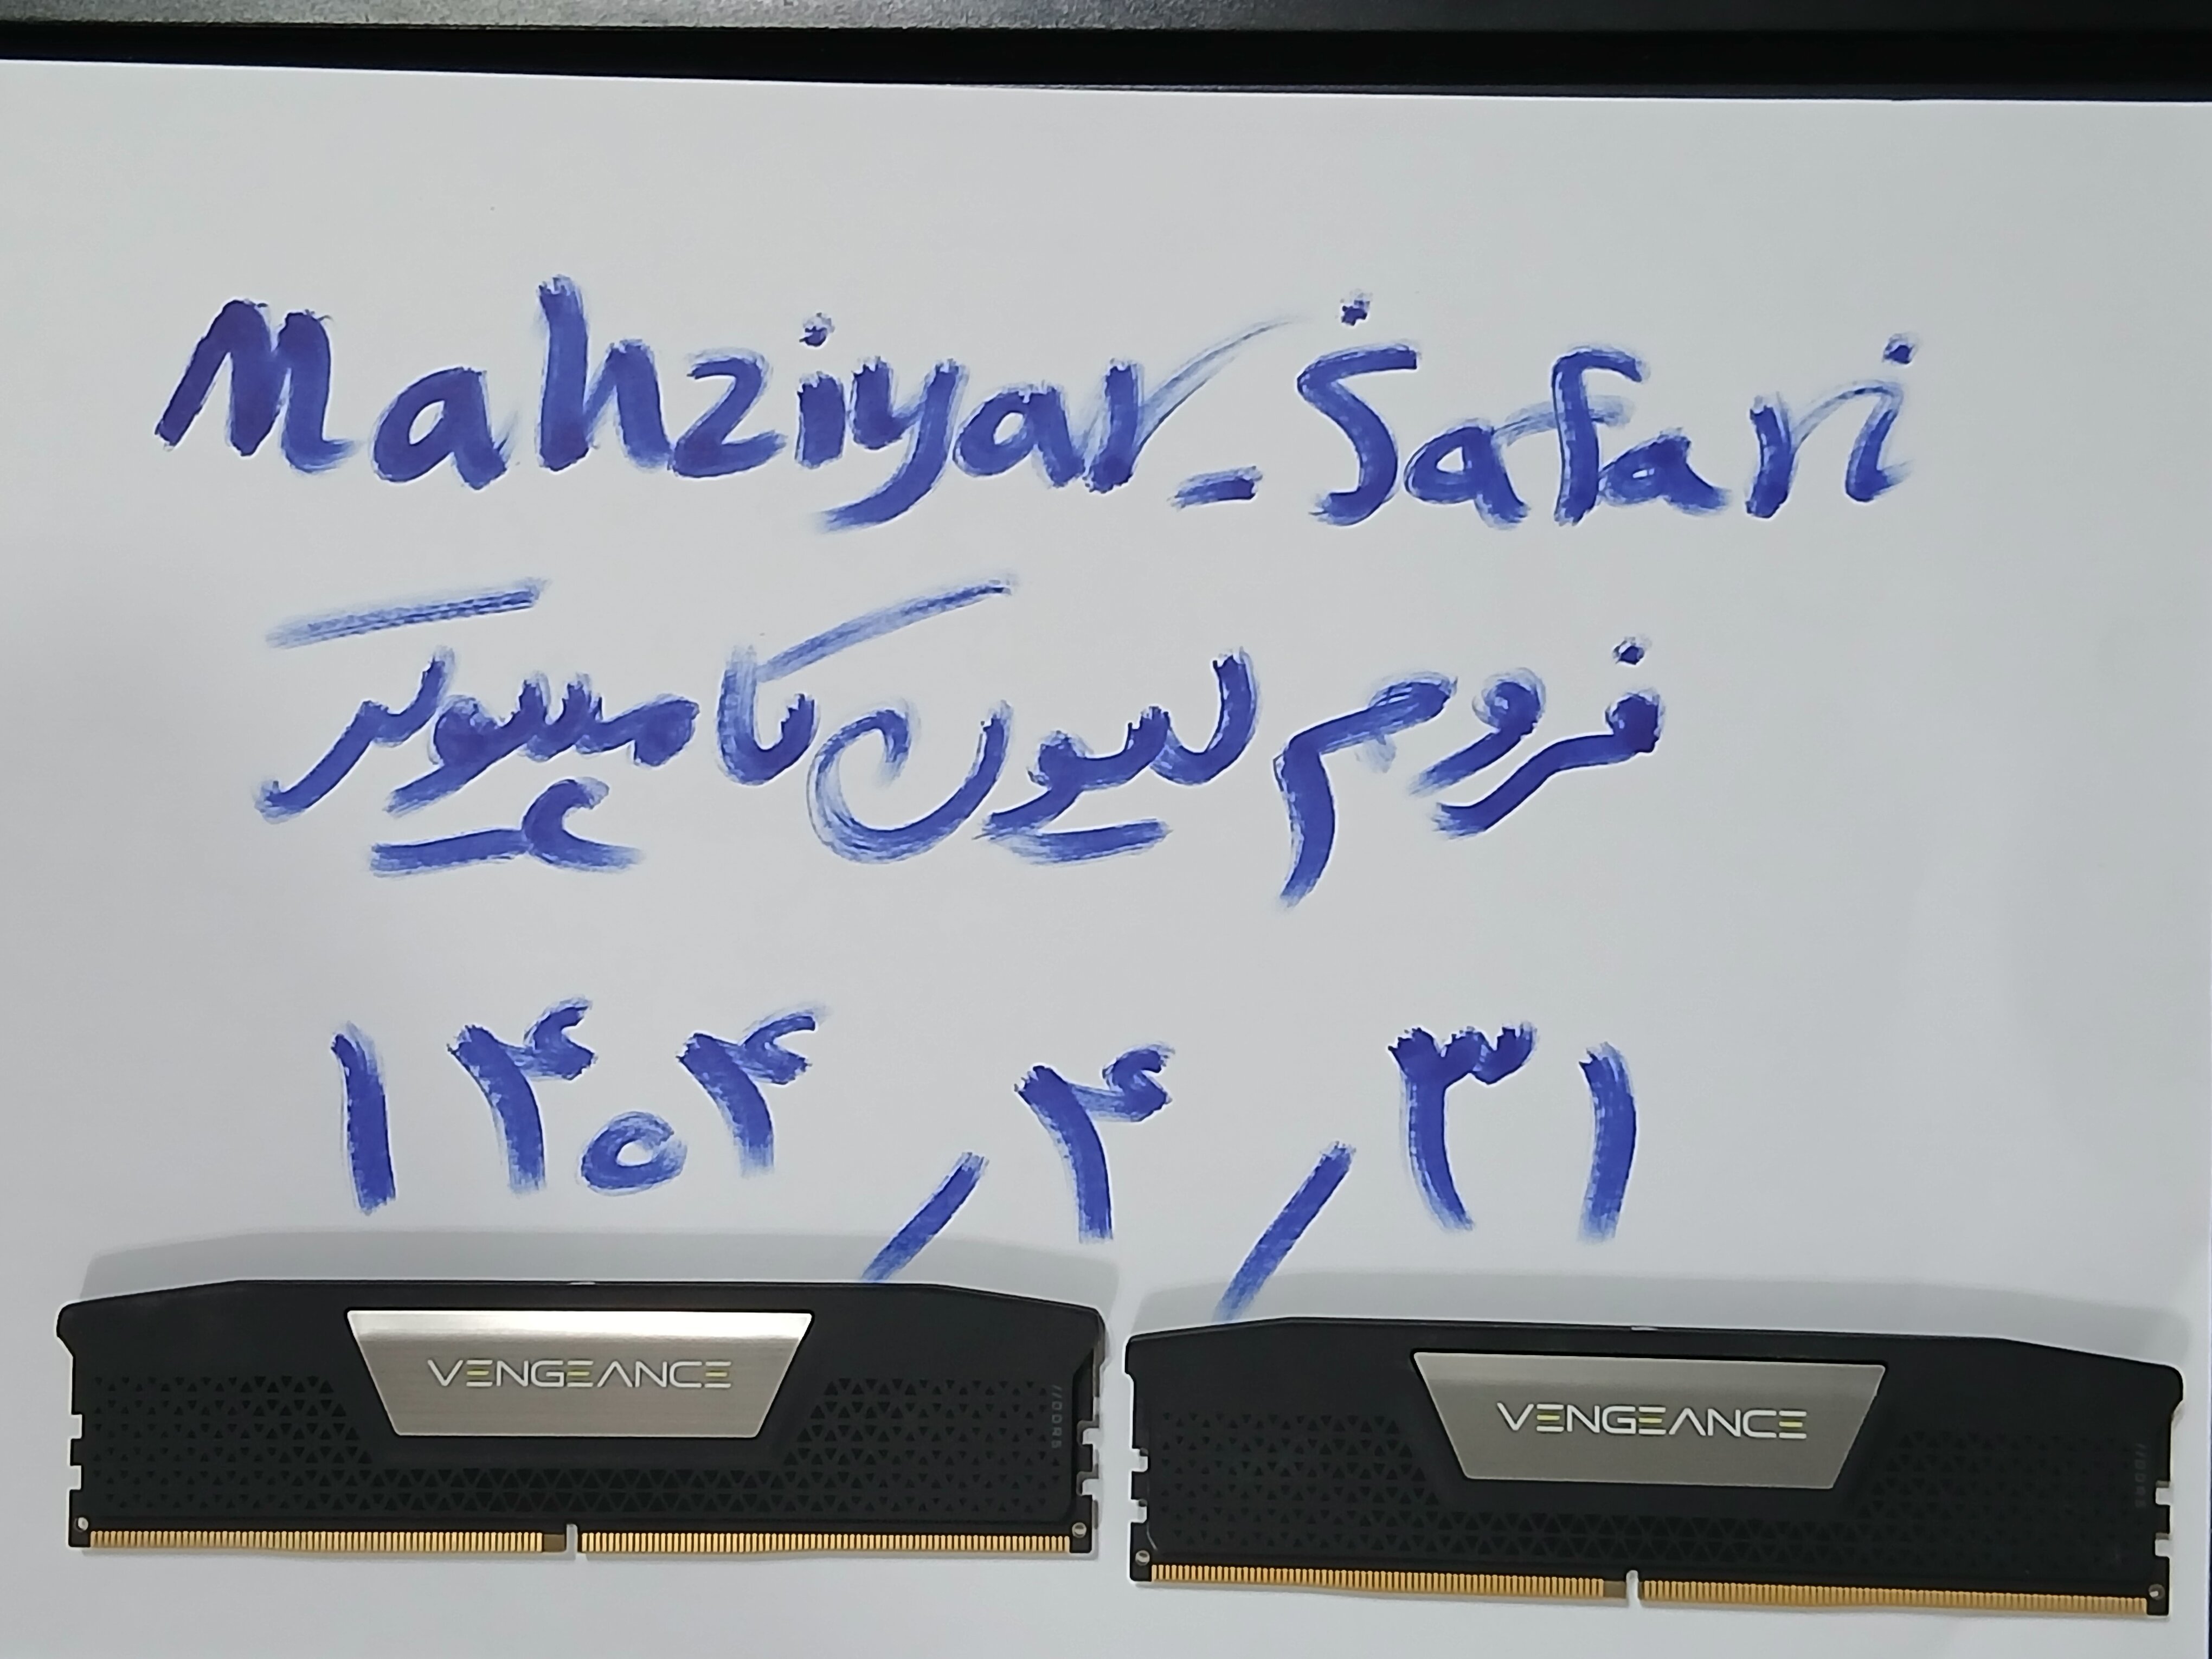 Mahziyar_Safari
فروم لیون کامپیوتر
۱۴۰۴/۴/۳۱
VENGEANCE
//DDR5
VENGEANCE
//DDR5